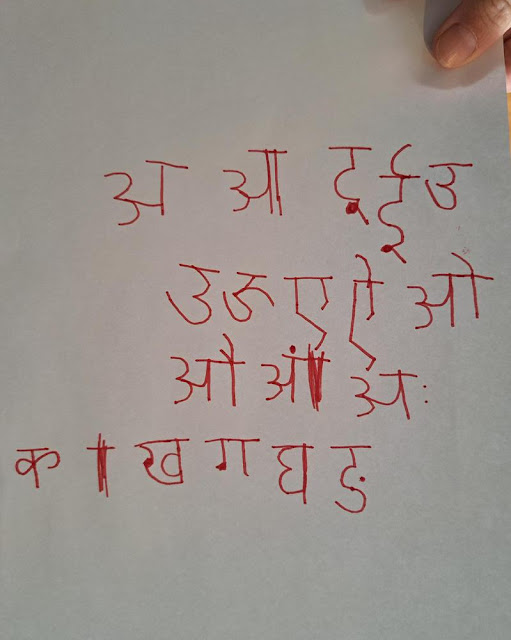 अ आ इ ई उ
उ ऊ ए ऐ ओ
औ अं अः
क ख ग घ ङ